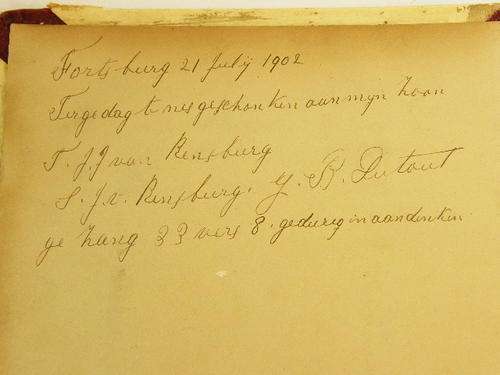 Forts-burg 21 July 1902
Tergedagtenes geschonken aan mijn Zoon
T. J J van Rensburg
S. J. v. Rensburg. G. R. Dutout
ge Zang 33 vers 8. gedureg in aandenken